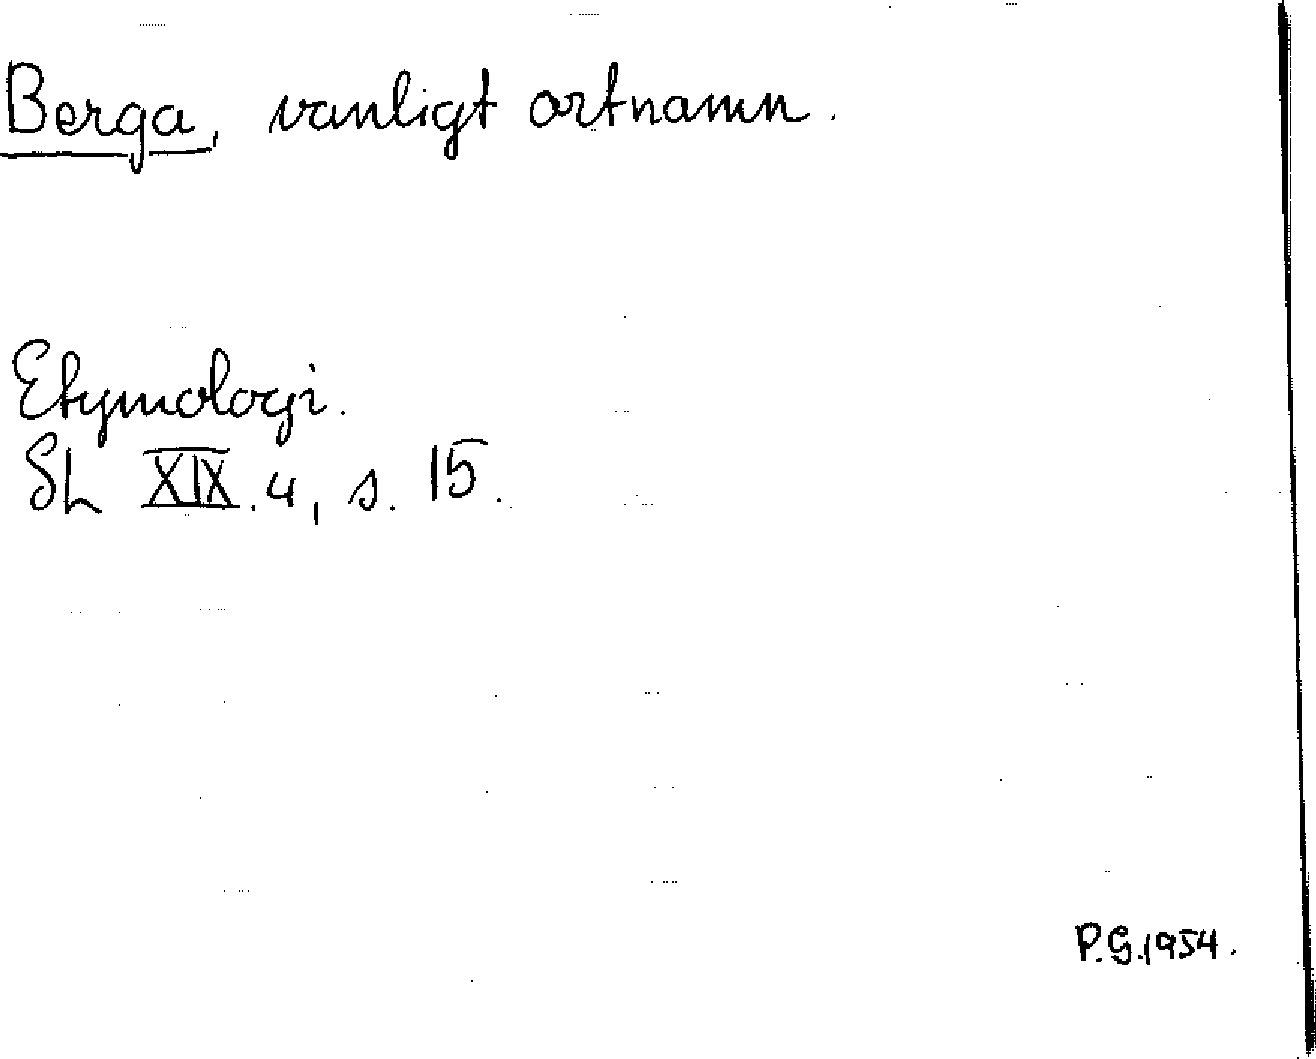 Berga, vanligt ortnamn.
Etymologi.
SL XIX.4, s. 15.
P.G.1954.